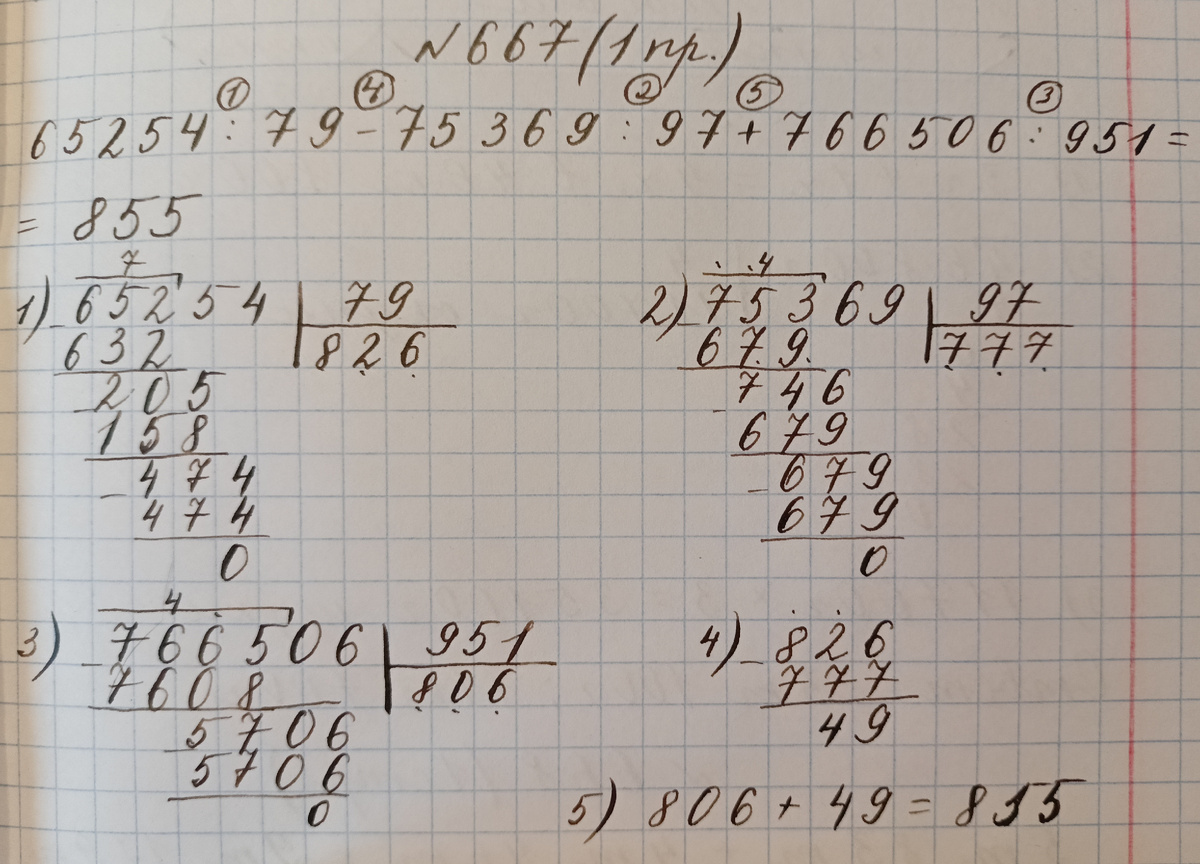 N667 (1 пр.)
① ④ ② ⑤ ③
65254 : 79 - 75369 : 97 + 766506 : 951 =
= 855
7
1) - 65254 | 79
632 | 826
- 205
158
- 474
474
0
4
2) - 75369 | 97
679 | 777
- 746
679
- 679
679
0
4
3) - 766506 | 951
7608 | 806
5706
5706
0
4) - 826
777
49
5) 806 + 49 = 855